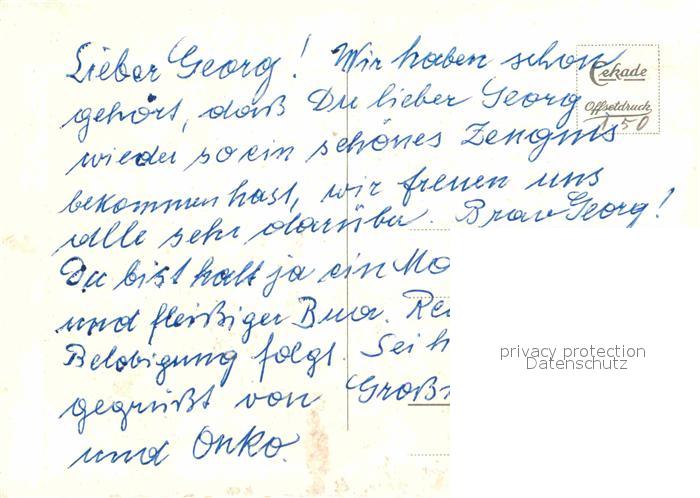 Lieber Georg! Wir haben schon
gehört, daß Du lieber Georg
wieder so ein schönes Zeugnis
bekommen hast, wir freuen uns
alle sehr darüber. Brav Georg!
Du bist halt ja ein Mo
und fleißiger Bua. Re
Belobigung folgt. Sei h
gegrüßt von Groß
und Onko.
Cekade
Offsetdruck
1,50
privacy protection
Datenschutz